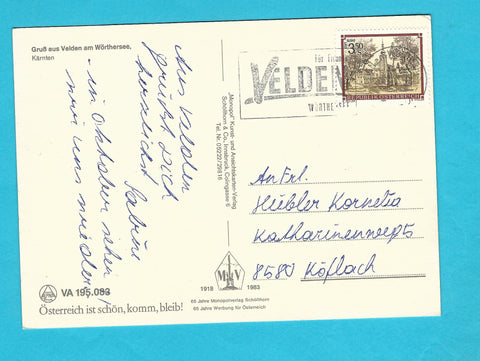 Gruß aus Velden am Wörthersee,
Kärnten
Aus Velden
grüßt Dich
herzlichst Sabine
- im Oktober sehen
wir uns wieder!
VA 195.083
Österreich ist schön, komm, bleib!
"Monopol" Kunst- und Ansichtskarten-Verlag
Schöllhorn & Co., Innsbruck, Colingasse 6
Tel. Nr. 05222/29816
1918 1983
65 Jahre Monopolverlag Schöllhorn
65 Jahre Werbung für Österreich
VELDEN
WÖRTHERSEE
3.50
REPUBLIK ÖSTERREICH
An Frl.
Hübler Kornelia
Katharinenweg 5
8580 Köflach